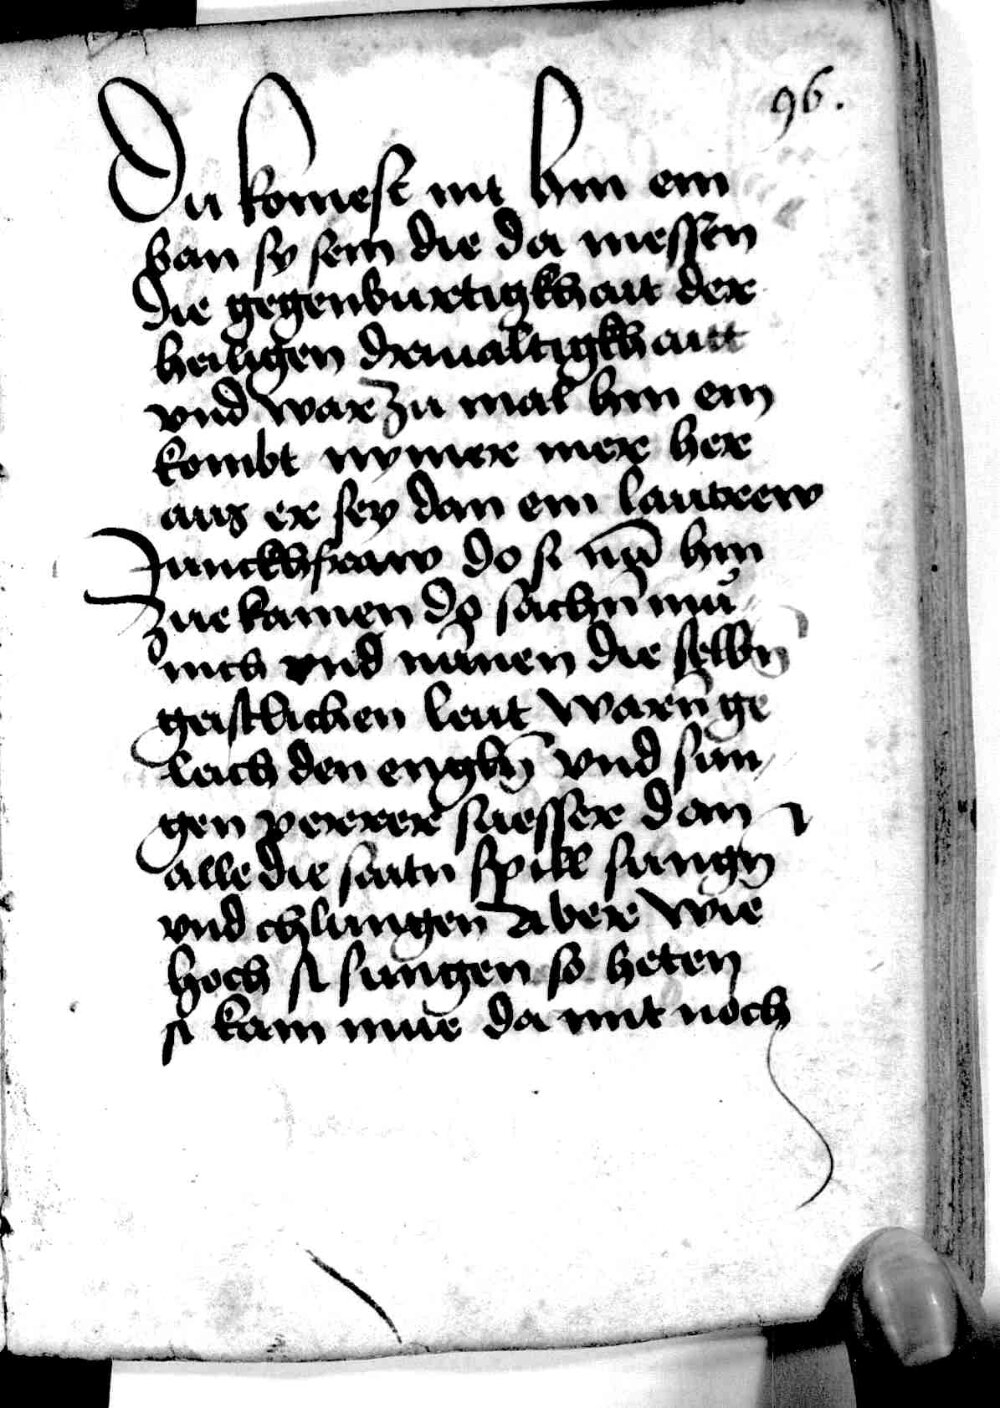 96.
Du komest nit hin ein
wan sy sein die da niessen
die gegenburtigkhait der
heiligen driualtigkhaitt
vnd war zu mal hin ein
kombt nymer mer her
aus er sey dan ein lautrew
Junckhfraw do si nā hin
zue kamen do sachn̄ mü
nich vnd nūnen die selbn̄
geistlichen leut warn̄ ge
leich den engln̄ vnd sun
gen verrer suesser dan
alle die saitn spill sungn̄
vnd chlungen Aber wie
hoch si sungen so heten
si kain mue da mit noch